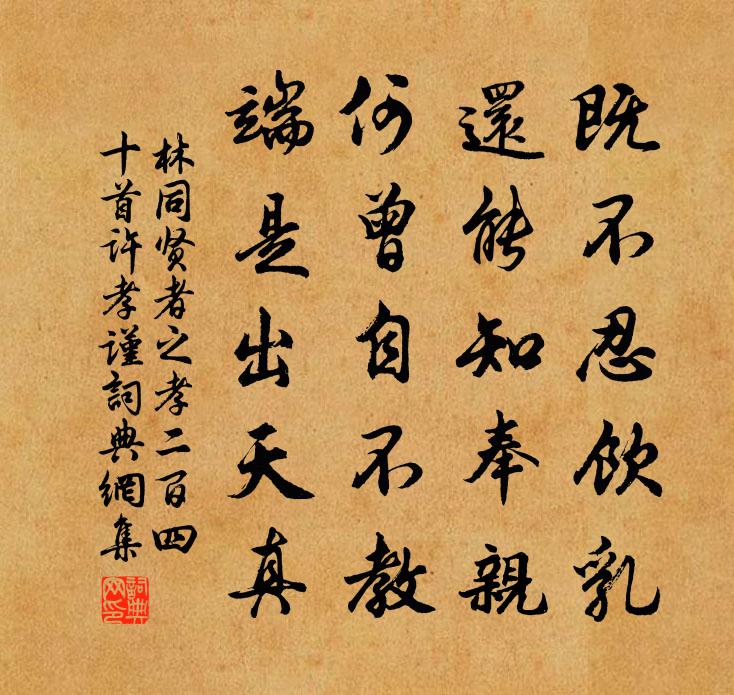 既不忍飲乳
還能知奉親
何曾自不教
端是出天真
林同贤者之孝二百四
十首许孝谨詞典網集
詞典
网印